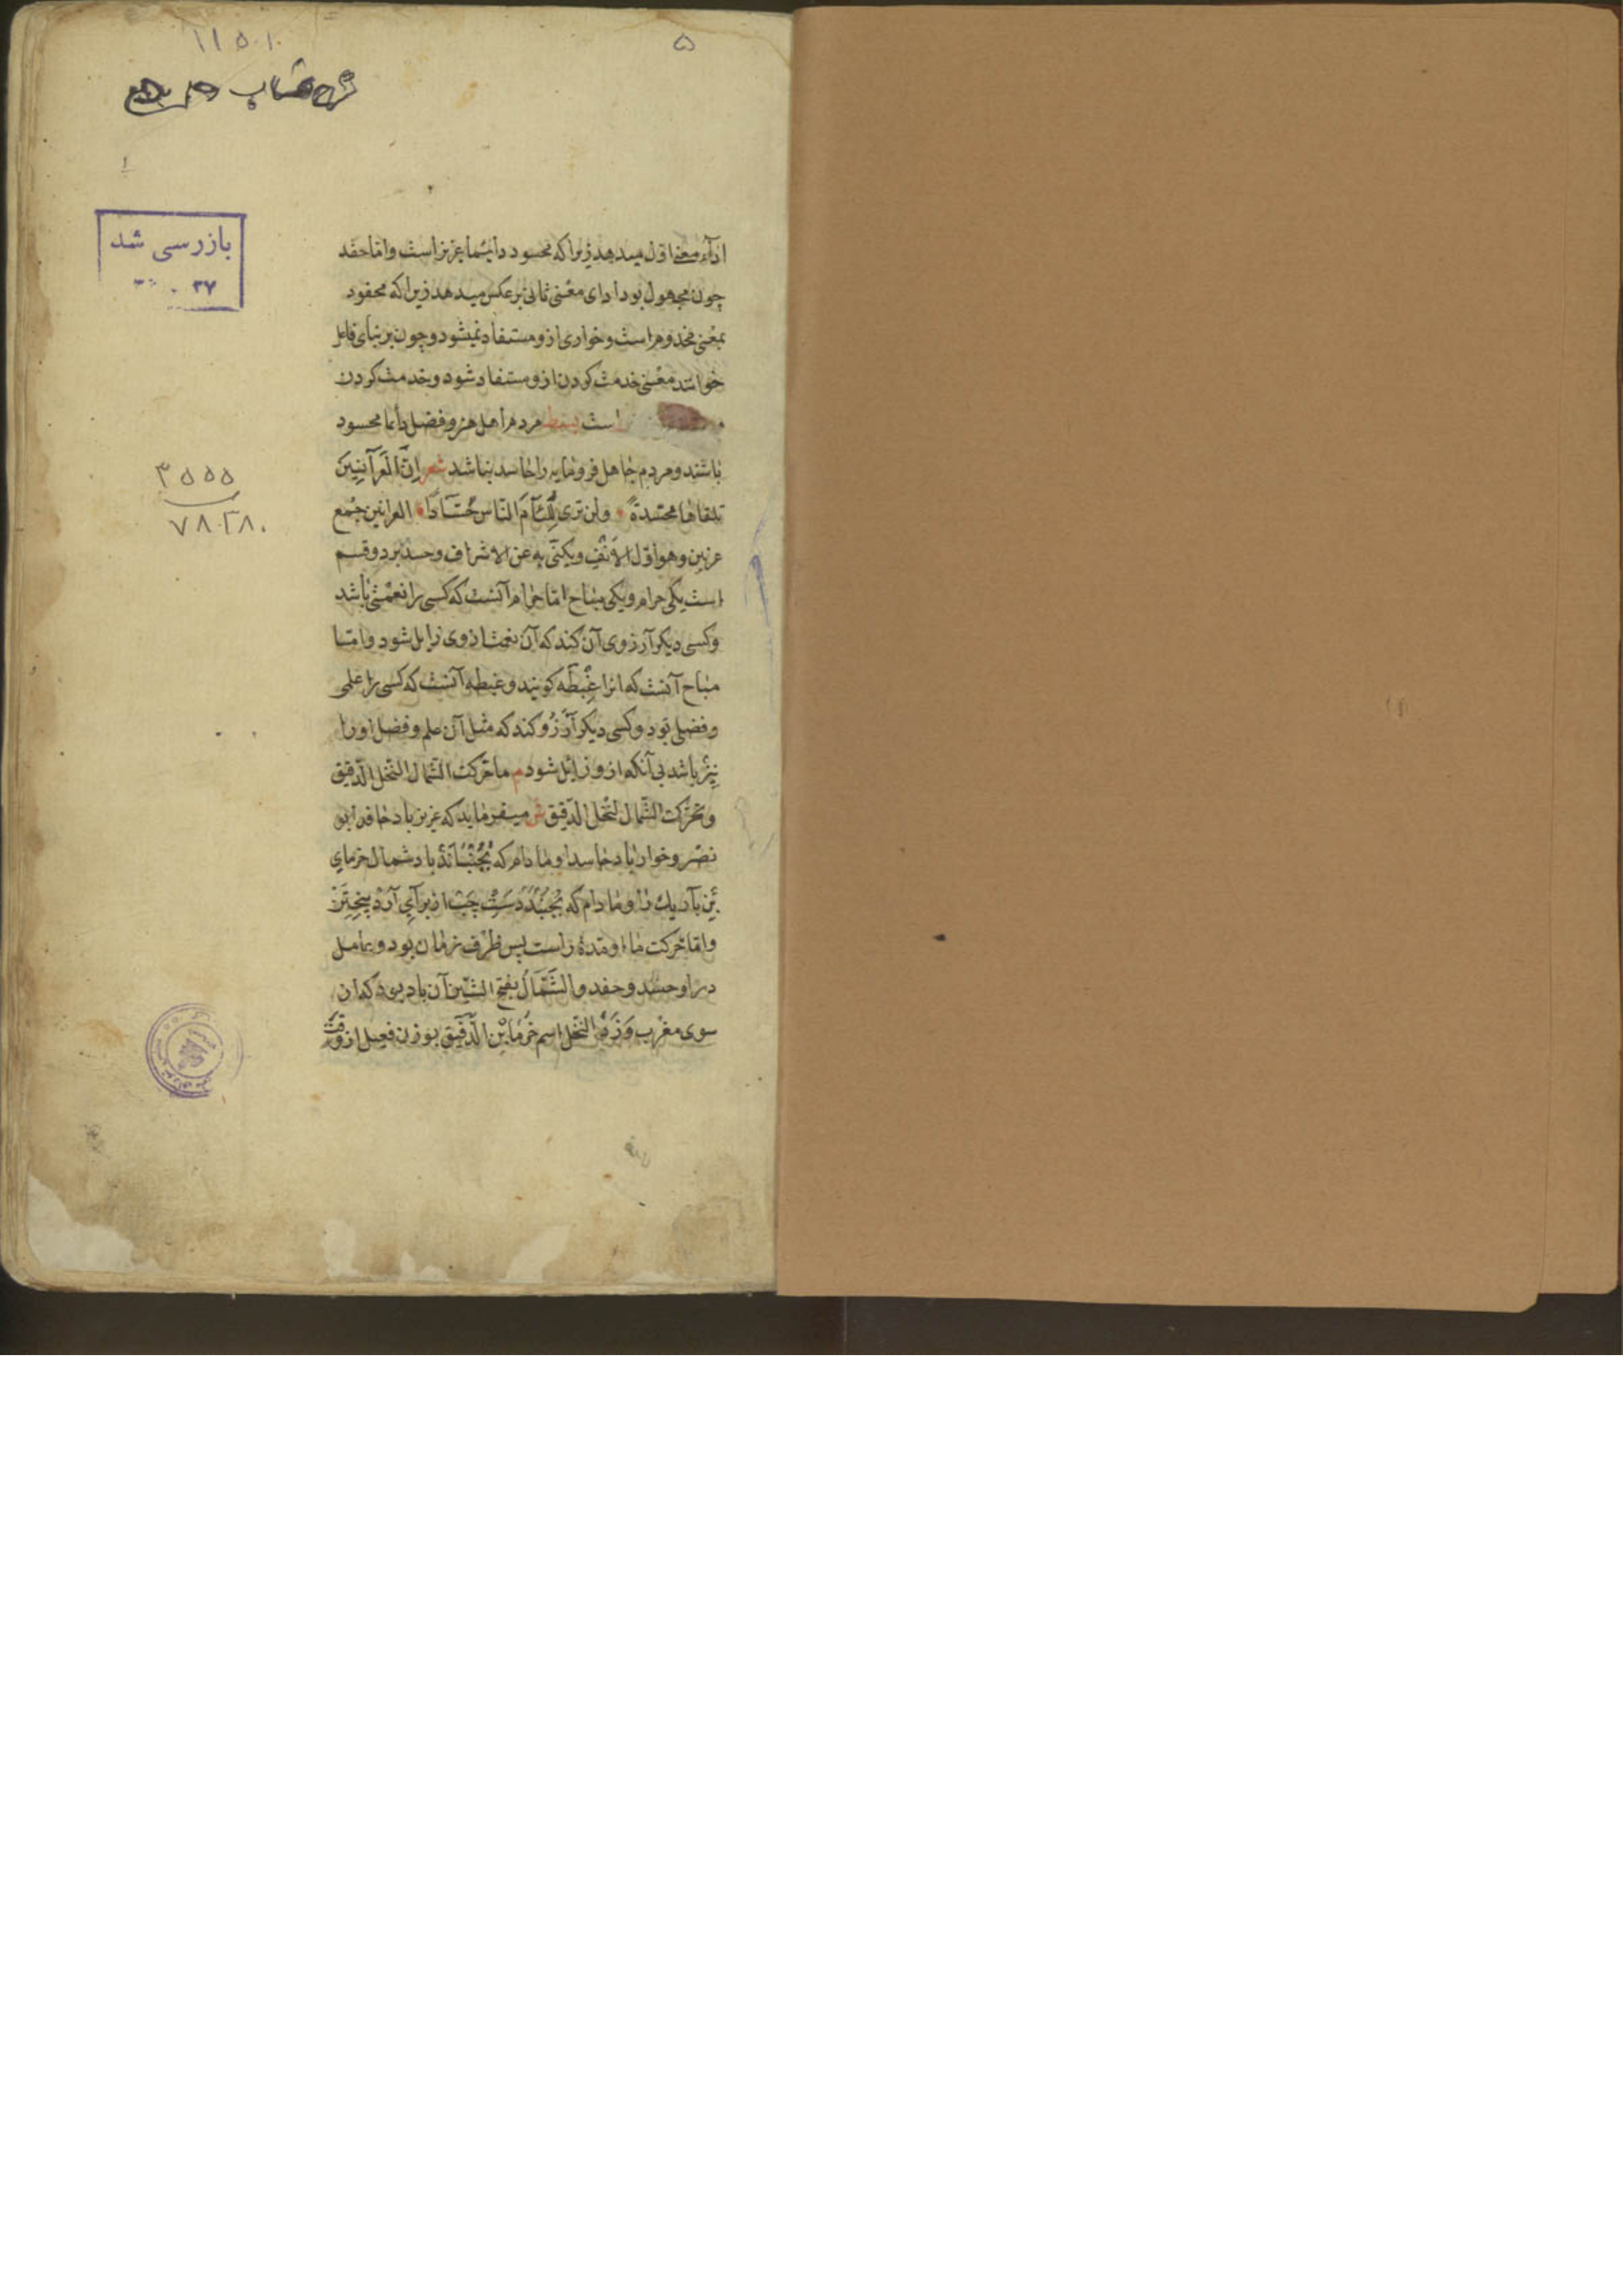 ۵
۱۱۵۰۱۰
شرح نصاب
۱
بازرسی شد
۳۷
۳۵۵۵
۷۸۰۲۸۰
ادآء معنی اوّل میدهد زیرا که محسود دایما عزیز است و اما حفد
چون مجهول بود ادای معنی ثانی بر عکس میدهد زیرا که محفود
بمعنی مخدوم است و خواری ازو مستفاد نمیشود و چون بر بنای فاعل
خوانند معنی خدمت کردن ازو مستفاد شود و خدمت کردن
است مردم اهل هنر و فضل دائما محسود
باشند و مردم جاهل فرومایه را حاسد نباشد شعر اِنَّ الْعَرَآنِينَ
تلقاها محسّدةً ولن تری لِلِئَآمِ النّاس حُسَّآدًا العرانین جمع
عرنین و هو اوّل الاَنْفِ ویکنّی به عن الاشراف و حسد بر دو قسم
است یکی حرام و یکی مباح امّا حرام آنست که کسی را نعمتی باشد
و کسی دیکر آرزوی آن کند که آن نعمت از وی زایل شود و امّا
مباح آنست که انرا غِبْطَه کویند و غبطه آنست که کسی را علمی
و فضلی بود و کسی دیکر آرْزُو کند که مثل آن علم و فضل او را
نیز باشد بی آنکه ازو زایل شود م ما حرّکت الشّمال النّخل الدّقیق
و تحرّکت الشّمال لنخل الدّقیق ش میفرماید که عزیز باد حافد ابو
نصر و خوار باد حاسد او مادام که بُجُنْبٰانَدْ باد شمال خرمای
بُنِ باریك را و مادام که بُجُنْبَدْ دَسْتِ چَپْ از برآیِ آرْد بیخْتَنْ
و اما حرکت ما او مدة راست پس ظرف زمان بود و عامل
در او حسد و حفد و الشَّمَالُ بفتح الشّین آن باد بود که از
سوی مغرب وَزَدْ النّخل اسم خُرْمٰابُنْ الدَّقیق بوزن فعیل از دقّت